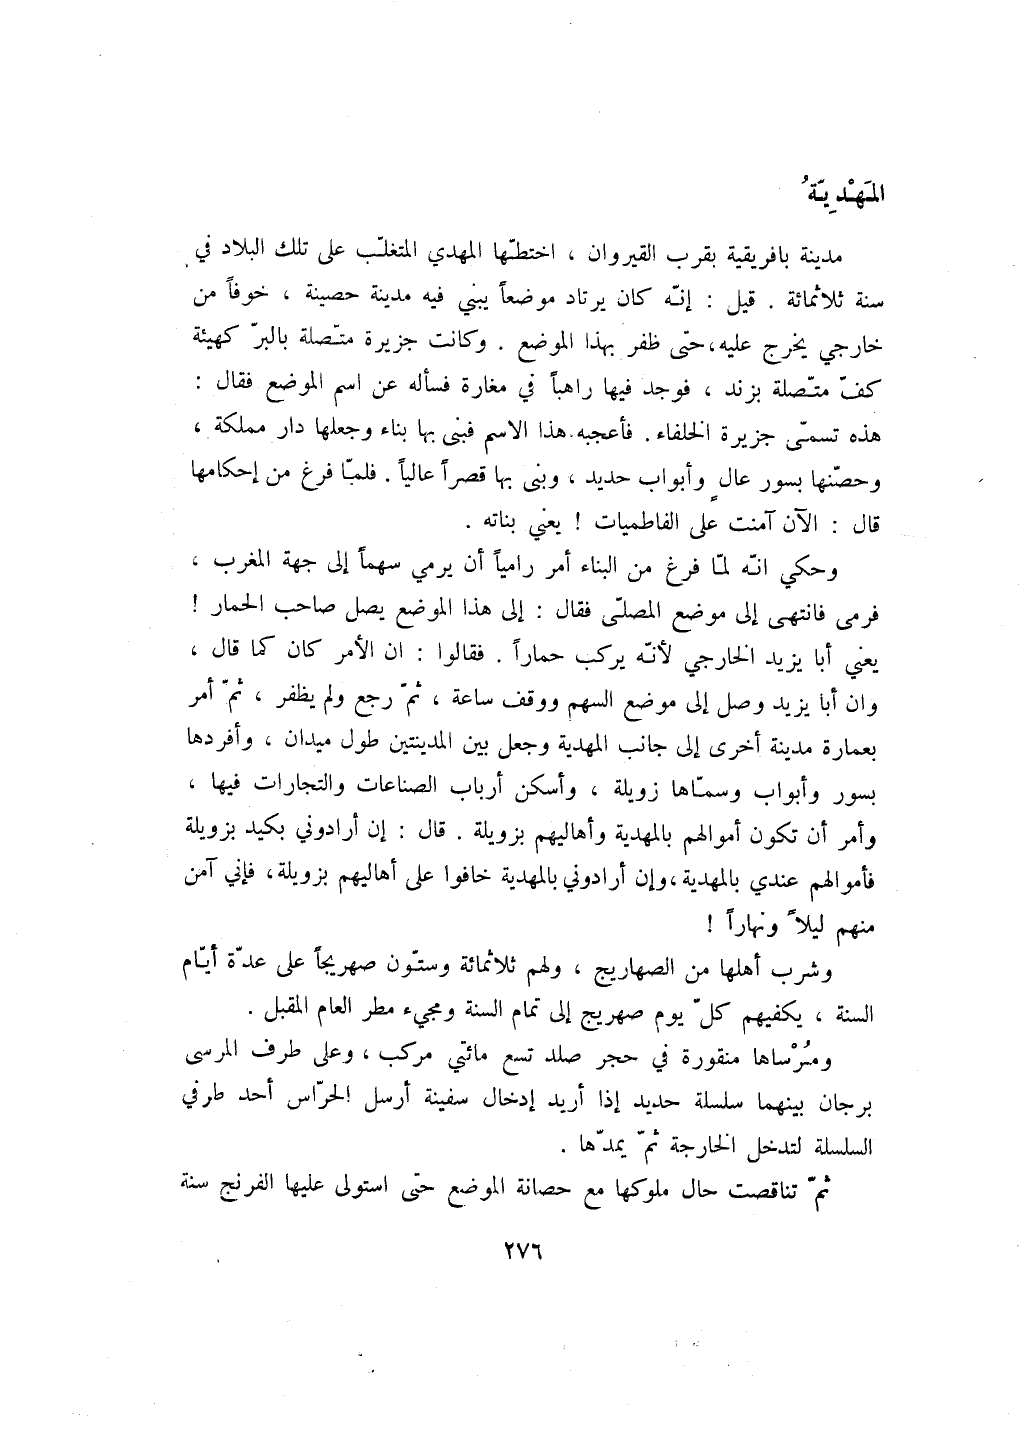 المَهْدِيّةُ
مدينة بافريقية بقرب القيروان ، اختطّها المهدي المتغلّب على تلك البلاد في
سنة ثلاثمائة . قيل : إنّه كان يرتاد موضعاً يبني فيه مدينة حصينة ، خوفاً من
خارجي يخرج عليه، حتى ظفر بهذا الموضع . وكانت جزيرة متّصلة بالبرّ كهيئة
كفّ متّصلة بزند ، فوجد فيها راهباً في مغارة فسأله عن اسم الموضع فقال :
هذه تسمّى جزيرة الخلفاء . فأعجبه هذا الاسم فبنى بها بناء وجعلها دار مملكة ،
وحصّنها بسور عالٍ وأبواب حديد ، وبنى بها قصراً عالياً . فلمّا فرغ من إحكامها
قال : الآن آمنت على الفاطميات ! يعني بناته .
وحكي انّه لمّا فرغ من البناء أمر رامياً أن يرمي سهماً إلى جهة المغرب ،
فرمى فانتهى إلى موضع المصلّى فقال : إلى هذا الموضع يصل صاحب الحمار !
يعني أبا يزيد الخارجي لأنّه يركب حماراً . فقالوا : ان الأمر كان كما قال ،
وان أبا يزيد وصل إلى موضع السهم ووقف ساعة ، ثمّ رجع ولم يظفر ، ثمّ أمر
بعمارة مدينة أخرى إلى جانب المهدية وجعل بين المدينتين طول ميدان ، وأفردها
بسور وأبواب وسمّاها زويلة ، وأسكن أرباب الصناعات والتجارات فيها ،
وأمر أن تكون أموالهم بالمهدية وأهاليهم بزويلة . قال : إن أرادوني بكيد بزويلة
فأموالهم عندي بالمهدية ، وإن أرادوني بالمهدية خافوا على أهاليهم بزويلة ، فإني آمن
منهم ليلاً ونهاراً !
وشرب أهلها من الصهاريج ، ولهم ثلاثمائة وستّون صهريجاً على عدّة أيّام
السنة ، يكفيهم كلّ يوم صهريج إلى تمام السنة ومجيء مطر العام المقبل .
ومُرْساها منقورة في حجر صلد تسع مائتي مركب ، وعلى طرف المرسى
برجان بينهما سلسلة حديد إذا أريد إدخال سفينة أرسل الحرّاس أحد طرفي
السلسلة لتدخل الخارجة ثمّ يمدّها .
ثمّ تناقصت حال ملوكها مع حصانة الموضع حتى استولى عليها الفرنج سنة
٢٧٦